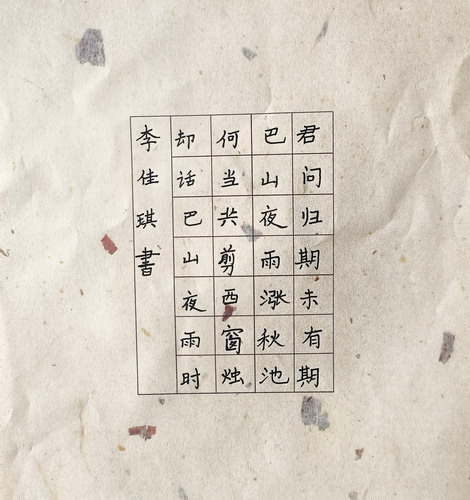 君问归期未有期
巴山夜雨涨秋池
何当共剪西窗烛
却话巴山夜雨时
李佳琪書